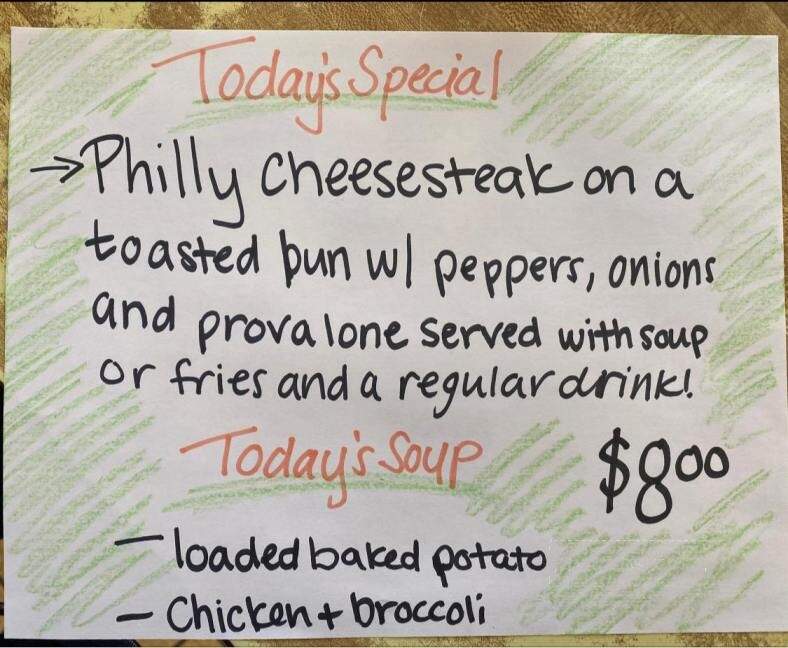 Today's Special
→Philly cheesesteak on a
toasted bun w/ peppers, onions
and provalone served with soup
or fries and a regular drink!
Today's Soup
$8.00
- loaded baked potato
- Chicken + broccoli